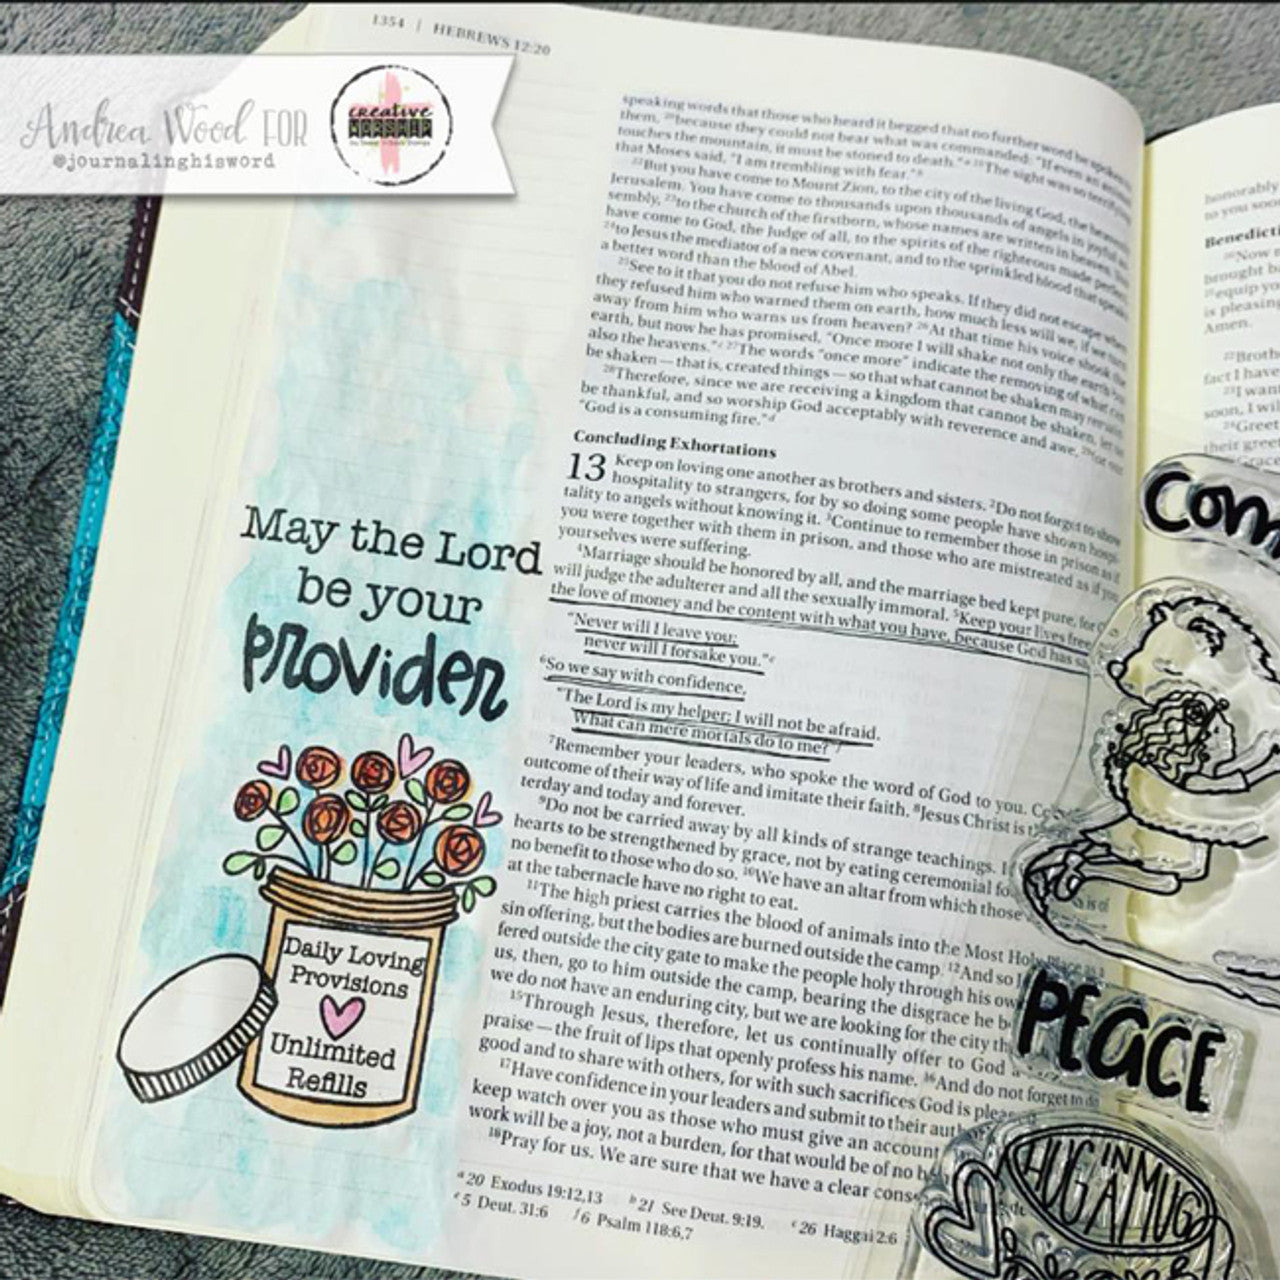 1354 | HEBREWS 12:20
Andrea Wood FOR
@journalinghisword
creative
WORSHIP
speaking words that those who heard it begged that no further word be spoken
them, 20because they could not bear what was commanded: "If even an animal
touches the mountain, it must be stoned to death." 21The sight was so terrifying
that Moses said, "I am trembling with fear."
22But you have come to Mount Zion, to the city of the living God, the heavenly
Jerusalem. You have come to thousands upon thousands of angels in joyful as-
sembly, 23to the church of the firstborn, whose names are written in heaven. You
have come to God, the Judge of all, to the spirits of the righteous made perfect,
24to Jesus the mediator of a new covenant, and to the sprinkled blood that speaks
a better word than the blood of Abel.
25See to it that you do not refuse him who speaks. If they did not escape when
they refused him who warned them on earth, how much less will we, if we turn
away from him who warns us from heaven? 26At that time his voice shook the
earth, but now he has promised, "Once more I will shake not only the earth but
also the heavens."c 27The words "once more" indicate the removing of what can
be shaken — that is, created things — so that what cannot be shaken may remain.
28Therefore, since we are receiving a kingdom that cannot be shaken, let us
be thankful, and so worship God acceptably with reverence and awe, 29for our
"God is a consuming fire."d
Concluding Exhortations
13 Keep on loving one another as brothers and sisters. 2Do not forget to show
hospitality to strangers, for by so doing some people have shown hospi-
tality to angels without knowing it. 3Continue to remember those in prison as if
you were together with them in prison, and those who are mistreated as if you
yourselves were suffering.
4Marriage should be honored by all, and the marriage bed kept pure, for G
will judge the adulterer and all the sexually immoral. 5Keep your lives free
the love of money and be content with what you have, because God has sa
"Never will I leave you;
never will I forsake you."e
6So we say with confidence,
"The Lord is my helper; I will not be afraid.
What can mere mortals do to me?"f
7Remember your leaders, who spoke the word of God to you. Co
outcome of their way of life and imitate their faith. 8Jesus Christ is t
terday and today and forever.
9Do not be carried away by all kinds of strange teachings. I
hearts to be strengthened by grace, not by eating ceremonial fo
no benefit to those who do so. 10We have an altar from which those
at the tabernacle have no right to eat.
11The high priest carries the blood of animals into the Most Holy Place as a
sin offering, but the bodies are burned outside the camp. 12And so J
fered outside the city gate to make the people holy through his ow
us, then, go to him outside the camp, bearing the disgrace he b
we do not have an enduring city, but we are looking for the city th
15Through Jesus, therefore, let us continually offer to God a
praise — the fruit of lips that openly profess his name. 16And do not forget to do
good and to share with others, for with such sacrifices God is pleas
17Have confidence in your leaders and submit to their auth
keep watch over you as those who must give an account
work will be a joy, not a burden, for that would be of no b
18Pray for us. We are sure that we have a clear cons
a 20 Exodus 19:12,13 b 21 See Deut. 9:19. c 26 Haggai 2:6
e 5 Deut. 31:6 f 6 Psalm 118:6,7
May the Lord
be your
provider
Daily Loving
Provisions
Unlimited
Refills
honorably
to you soo
Benedicti
20Now
brought b
21equip yo
is pleasing
Amen.
22Broth
fact I have
23I wan
soon, I wil
24Greet
their gree
Com
PEACE
HUG IN
A MUG